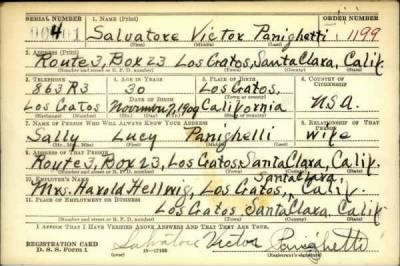 SERIAL NUMBER 1. NAME (Print) ORDER NUMBER
41 Salvatore Victor Panighetti 1199
(First) (Middle) (Last)
2. ADDRESS (Print)
Route 3, Box 23 Los Gatos, Santa Clara, Calif.
(Number and street or R. F. D. number) (Town) (County) (State)
3. TELEPHONE 4. AGE IN YEARS 5. PLACE OF BIRTH 6. COUNTRY OF CITIZENSHIP
863R3 30 Los Gatos,
DATE OF BIRTH (Town or county)
Los Gatos November 7, 1909 California U.S.A.
(Exchange) (Number) (Mo.) (Day) (Yr.) (State or country)
7. NAME OF PERSON WHO WILL ALWAYS KNOW YOUR ADDRESS 8. RELATIONSHIP OF THAT PERSON
Sally Lucy Panighetti wife
(Mr., Mrs., Miss) (First) (Middle) (Last)
9. ADDRESS OF THAT PERSON
Route 3, Box 23, Los Gatos, Santa Clara, Calif.
(Number and street or R. F. D. number) (Town) (County) (State)
10. EMPLOYER'S NAME Santa Clara,
Mrs. Harold Hellwig, Los Gatos, Calif.
11. PLACE OF EMPLOYMENT OR BUSINESS
Los Gatos Santa Clara, Calif.
(Number and street or R. F. D. number) (Town) (County) (State)
I AFFIRM THAT I HAVE VERIFIED ABOVE ANSWERS AND THAT THEY ARE TRUE.
REGISTRATION CARD
D. S. S. Form 1 16—17105 (Registrant's signature)
Salvatore Victor Panighetti